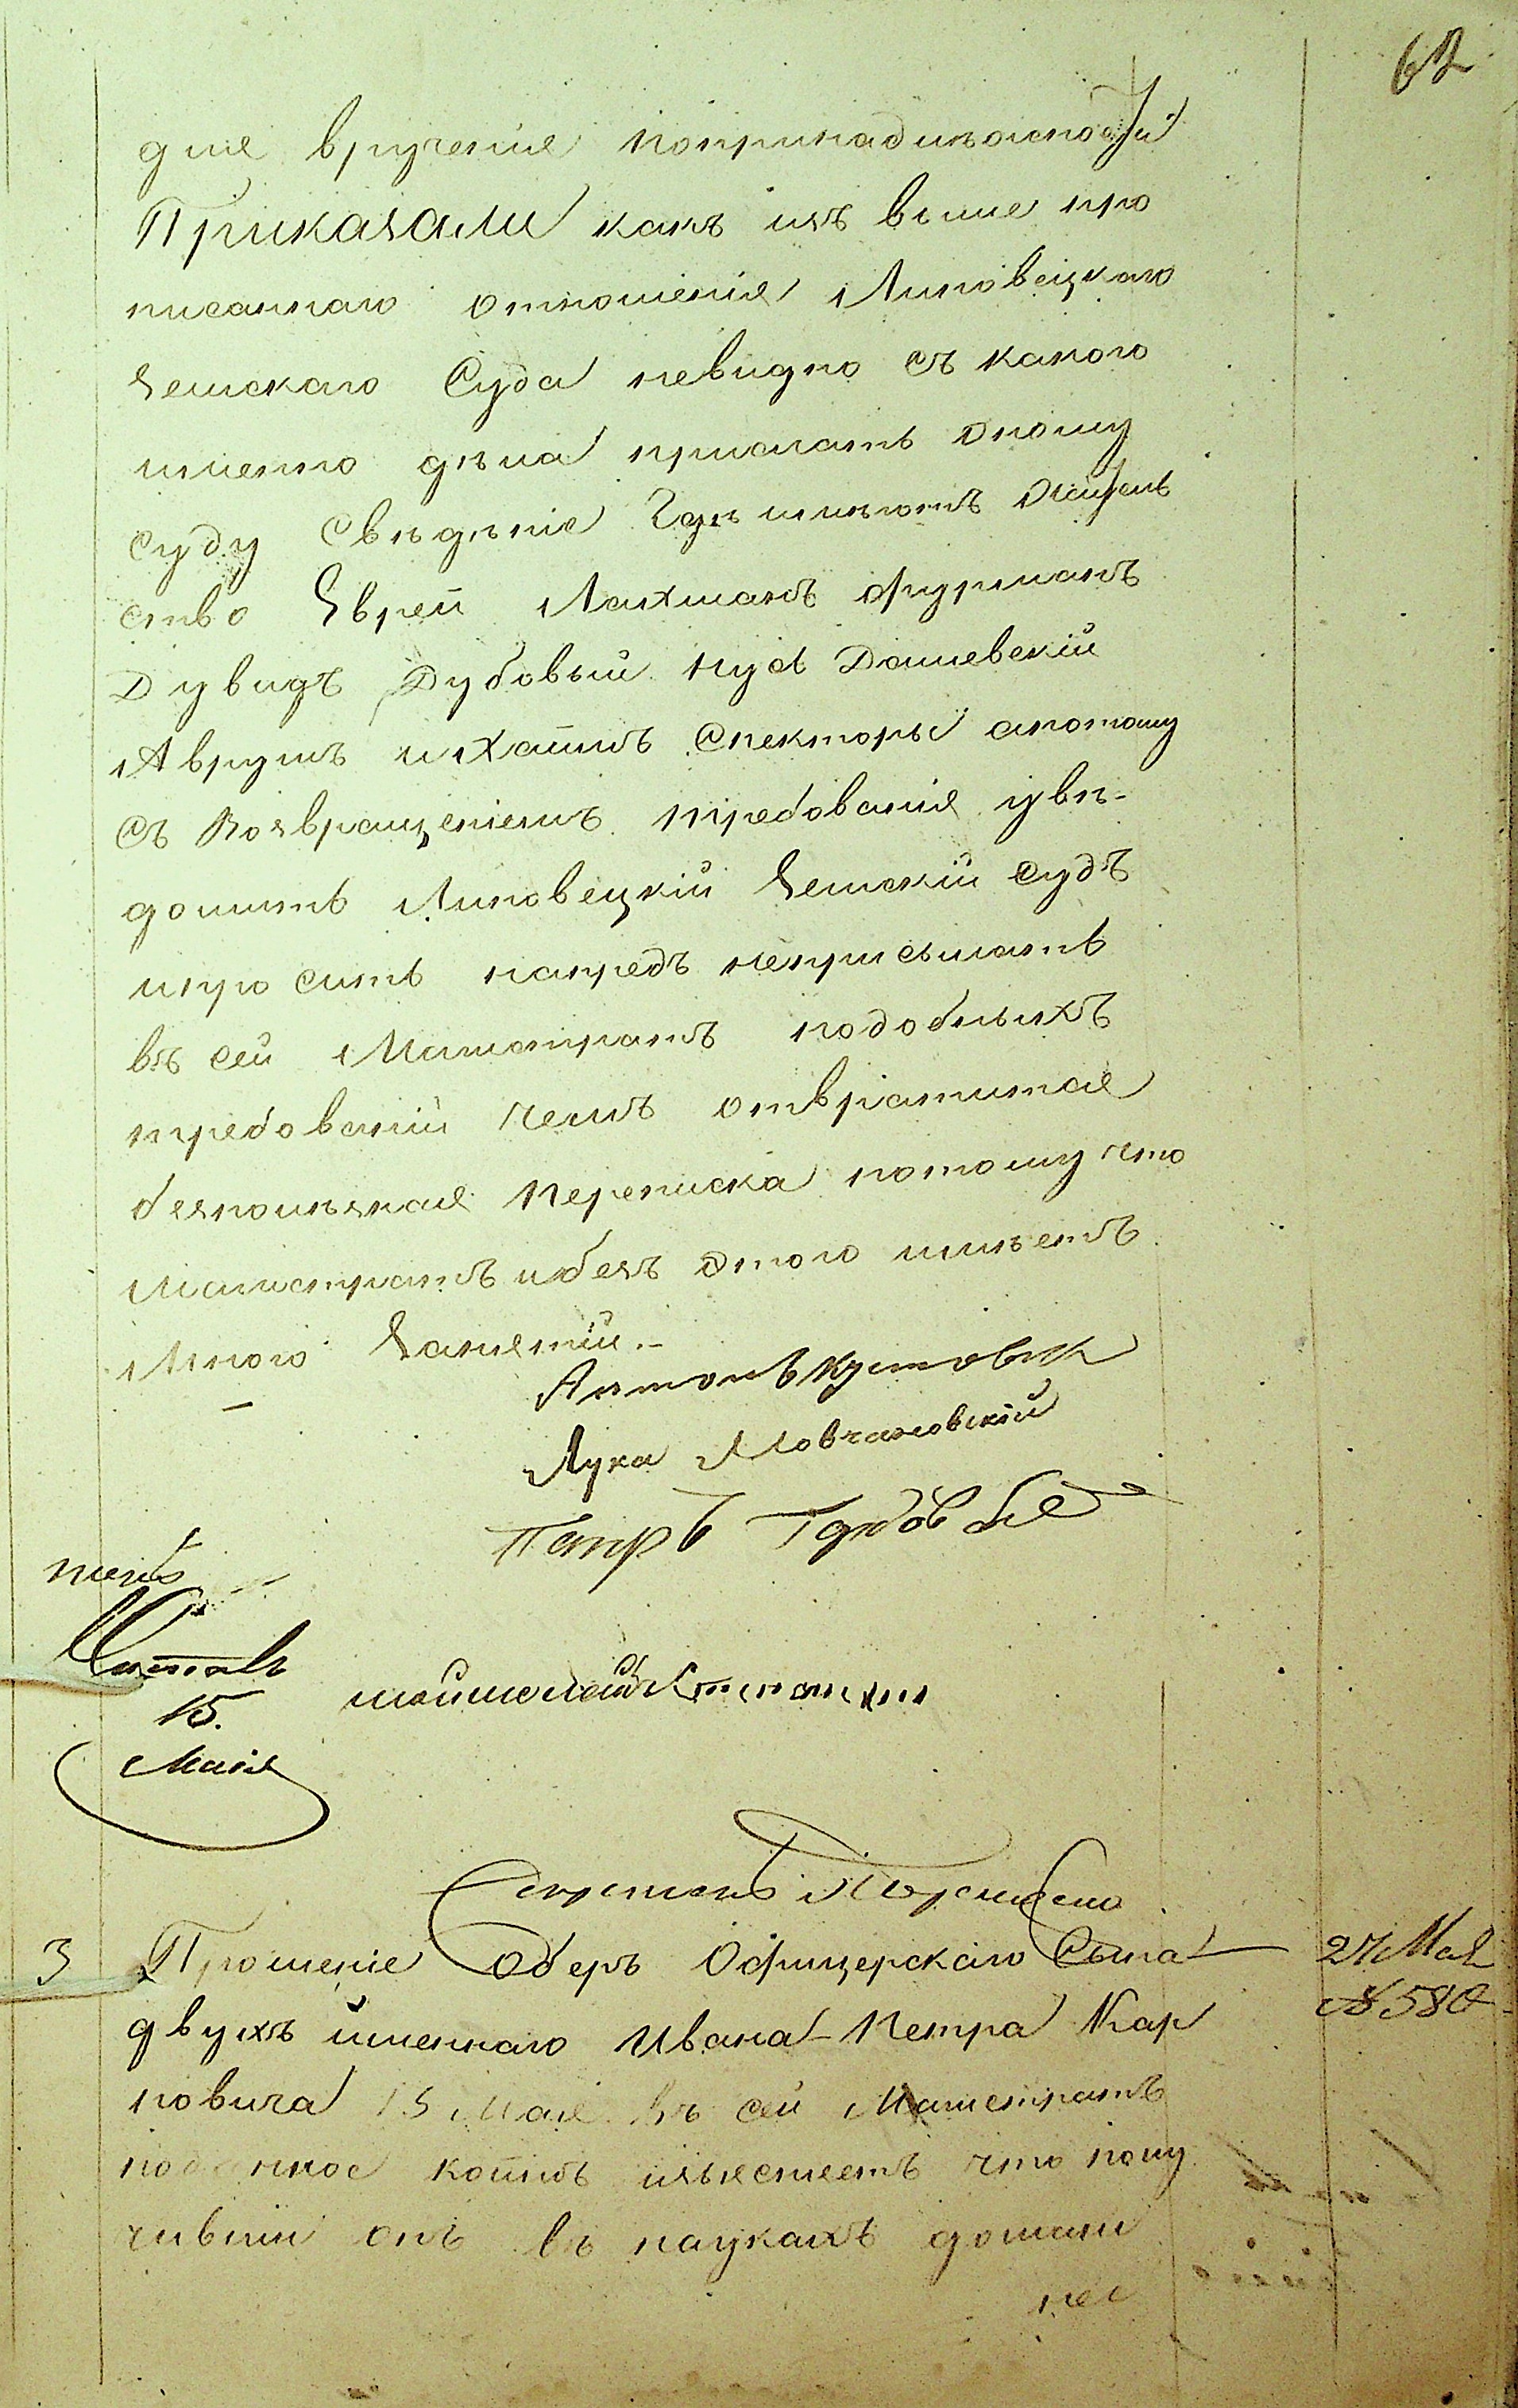 62
для врученія попринадлежности
Приказали какъ изъ выше про
писаннаго отношенія Липовецкаго
Земскаго Суда невидно съ какого
именно дѣла прислать оному
суду Свѣдѣніе Гдѣ имѣютъ Жител
ство Еврей Лахманъ Фурманъ
Дувидъ Дубовый Нусь Дашевскій
Аврумъ иХаимъ Спекторы апотому
Съ Возвращеніемъ требованія увѣ-
домить Липовецкій Земскій Судъ
ипросить напредъ неприсылать
въ сей Магистратъ подобныхъ
требованій чемъ отвратится
безполѣзная Переписка потому что
Магистратъ ибезъ этого имѣетъ
Много Занятій.-
Антонъ
Лука Мовчановскій
Петръ
Читалъ
15.
Маія
Секретарь
3 Прошеніе Оберъ Офицерскаго Сына
27 Мая
№ 580
двухъ именнаго Ивана-Петра Кар
повича 15 Мая въ сей Магистратъ
поданное коимъ изъясняетъ что полу
чивши онъ въ наукахъ домаш
нее